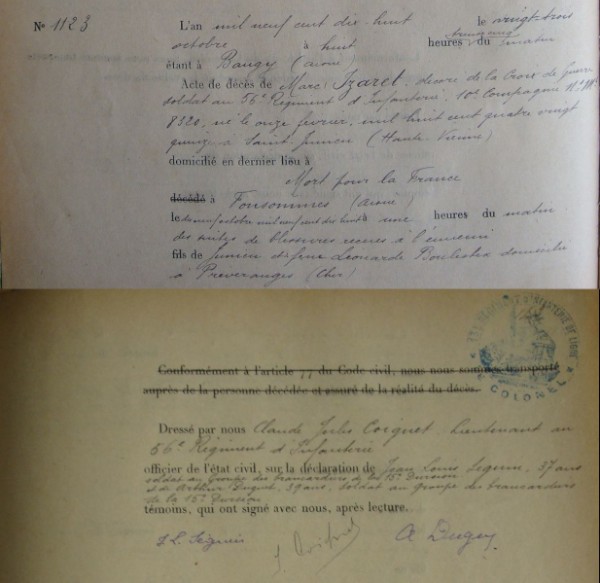 No 1123
L'an mil neuf cent dix-huit le vingt-trois
octobre à huit heures trente du matin
étant à Baugy (aisne)
Acte de décès de Marc Izaret, décoré de la Croix de Guerre
soldat au 56e Régiment d'Infanterie, 10e Compagnie No Mle
8320, né le onze février, mil huit cent quatre vingt
quinze à Saint Junien (Haute-Vienne)
domicilié en dernier lieu à
Mort pour la France
décédé à Fonsommes (aisne)
le dix neuf octobre mil neuf cent dix huit à une heures du matin
des suites de blessures reçues à l'ennemi
fils de Junien et de feue Léonarde Boulestex domiciliés
à Préveranges (Cher)
Conformément à l'article 77 du Code civil, nous nous sommes transporté
auprès de la personne décédée et assuré de la réalité du décès.
D'INFANTERIE DE LIGNE
COLONEL
Dressé par nous Claude Jules Coiquet Lieutenant au
56e Régiment d'Infanterie
officier de l'état civil, sur la déclaration de Jean Louis Seguin, 37 ans
soldat au Groupe des brancardiers de la 15e Division
et de Arthur Duguy, 39 ans, soldat au groupe des brancardiers
de la 15e Division
témoins, qui ont signé avec nous, après lecture.
J.L. Seguin
A Duguy